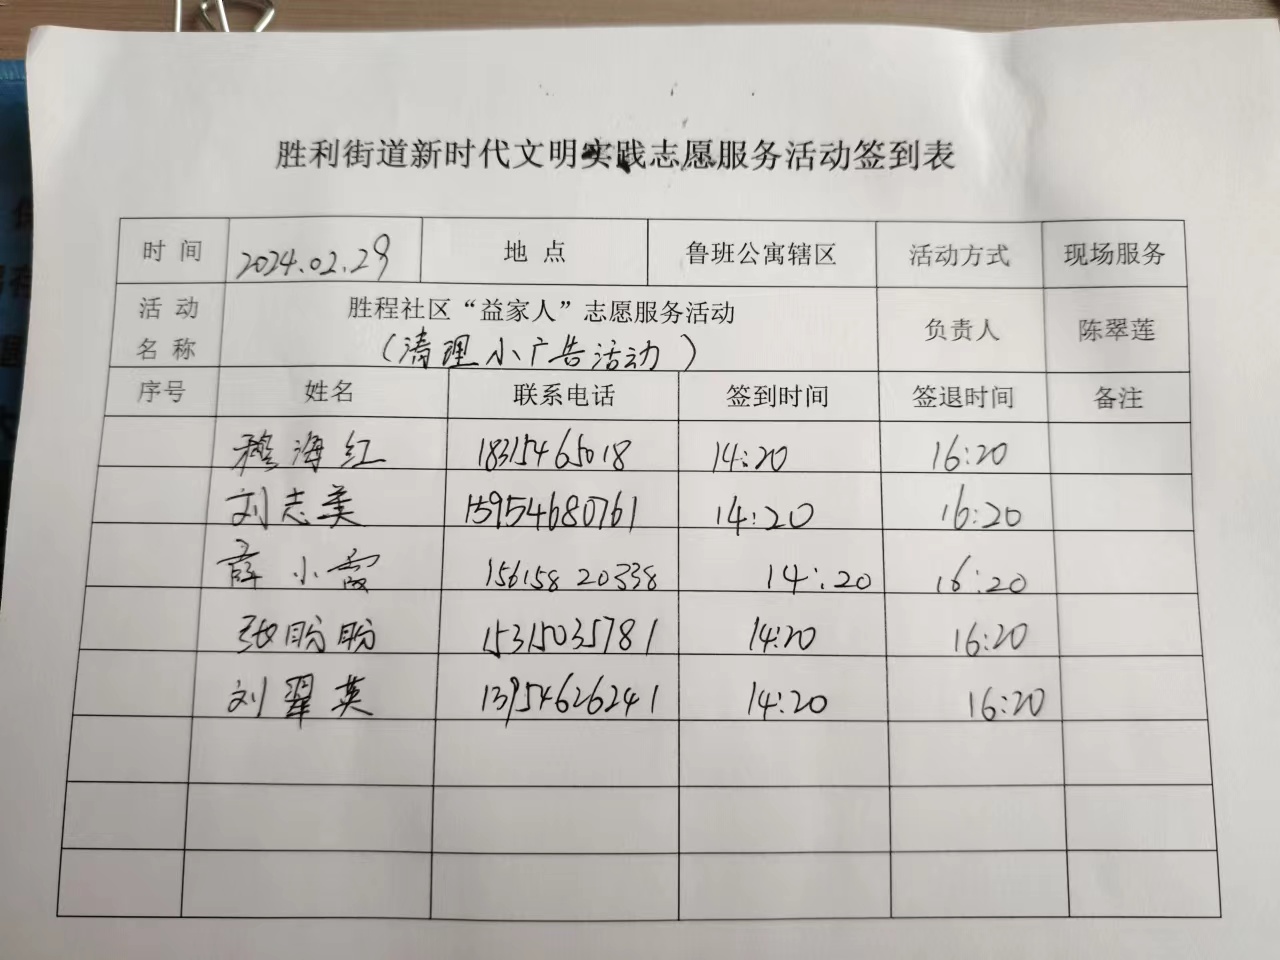 胜利街道新时代文明实践志愿服务活动签到表
时 间 2024.02.29 地 点 鲁班公寓辖区 活动方式 现场服务
活 动 名 称 胜程社区“益家人”志愿服务活动 负责人 陈翠莲
（清理小广告活动）
序号 姓名 联系电话 签到时间 签退时间 备注
穆海红 18315465018 14:20 16:20
刘志美 15954680761 14:20 16:20
薛小霞 15615820338 14:20 16:20
张盼盼 15315035781 14:20 16:20
刘翠英 13954626241 14:20 16:20